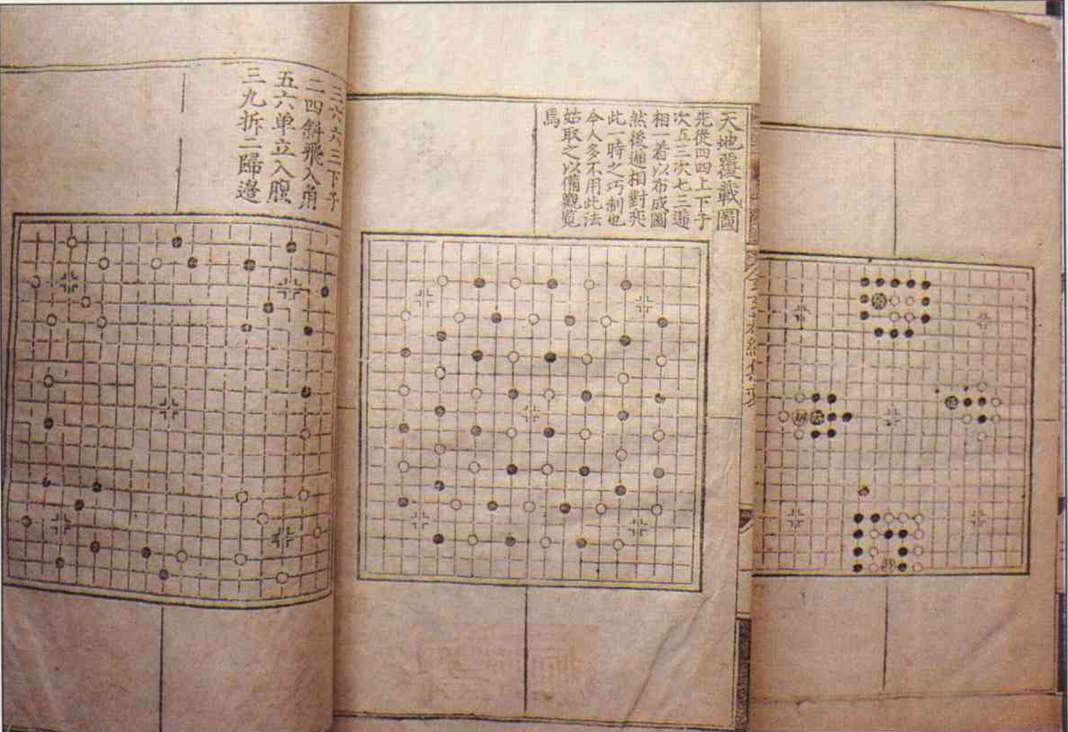 天地覆載圖
先從四四上下子
次五三次七三遞
相一着以布成圖
然後遞相對奕
此一時之巧制也
今人多不用此法
姑取之以備觀覧
焉
三六六三下子
二四斜飛入角
五六单立入腹
三九拆二歸邊